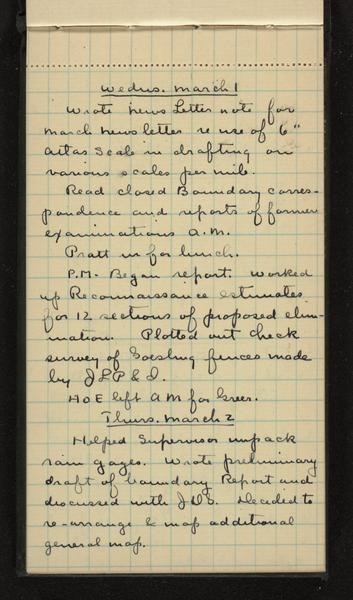 Wednes. March 1
Wrote News Letter note for
March News letter re use of 6"
Atlas Scale in drafting on
various scales per mile.
Read closed Boundary corres-
pondence and reports of former
examinations A.M.
Pratt in for lunch.
P.M. Began report. Worked
up Reconnaissance estimates
for 12 sections of proposed elim-
ination. Plotted out check
survey of Goesling fences made
by J L P & I.
H o E left A M for Greer.
Thurs. March 2
Helped Supervisor unpack
rain gages. Wrote preliminary
draft of boundary Report and
discussed with Decided to
re-arrange & map additional
general map.